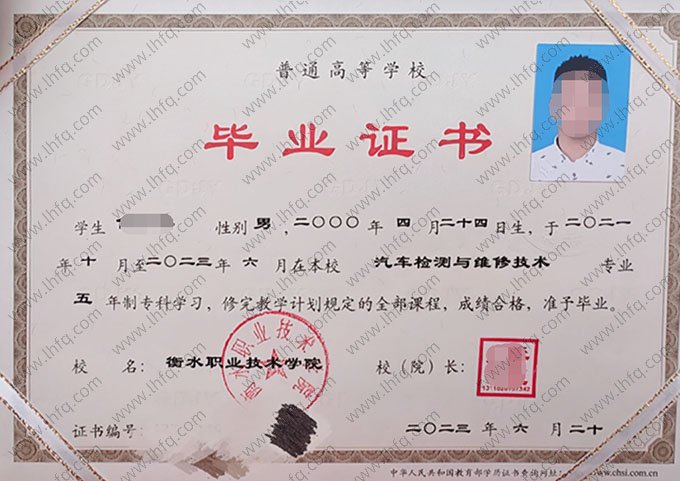 普通高等学校
毕业证书
学生 性别 男 ，二〇〇〇 年 四 月 二十四 日生，于 二〇二一
年 十 月至 二〇二三 年 六 月在本校 汽车检测与维修技术 专业
五 年制专科学习，修完教学计划规定的全部课程，成绩合格，准予毕业。
校 名：衡水职业技术学院 校（院）长：
证书编号： 二〇二三 年 六 月 二十
中华人民共和国教育部学历证书查询网址：www.chsi.com.cn
www.lhfq.com